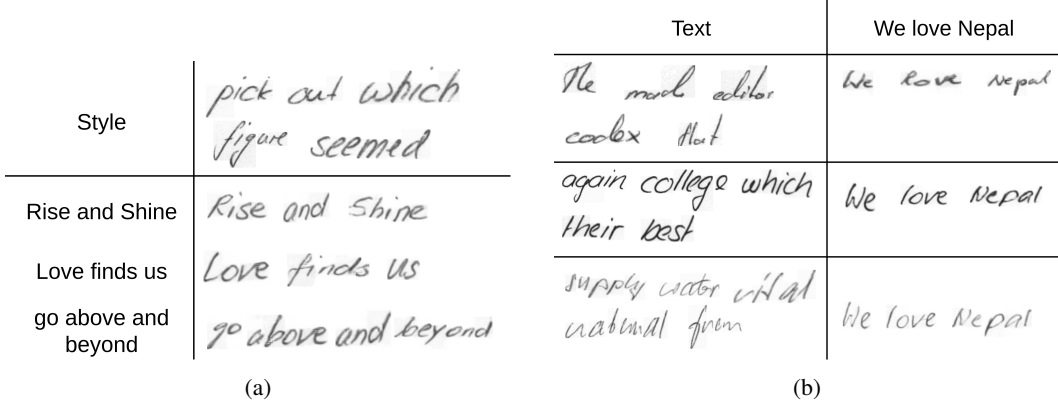 Style
pick out which
figure seemed
Rise and Shine
Rise and Shine
Love finds us
Love finds us
go above and
beyond
go above and beyond
(a)
Text
We love Nepal
The made editor
codex that
We love Nepal
again college which
their best
We love Nepal
supply water vital
natural from
We love Nepal
(b)